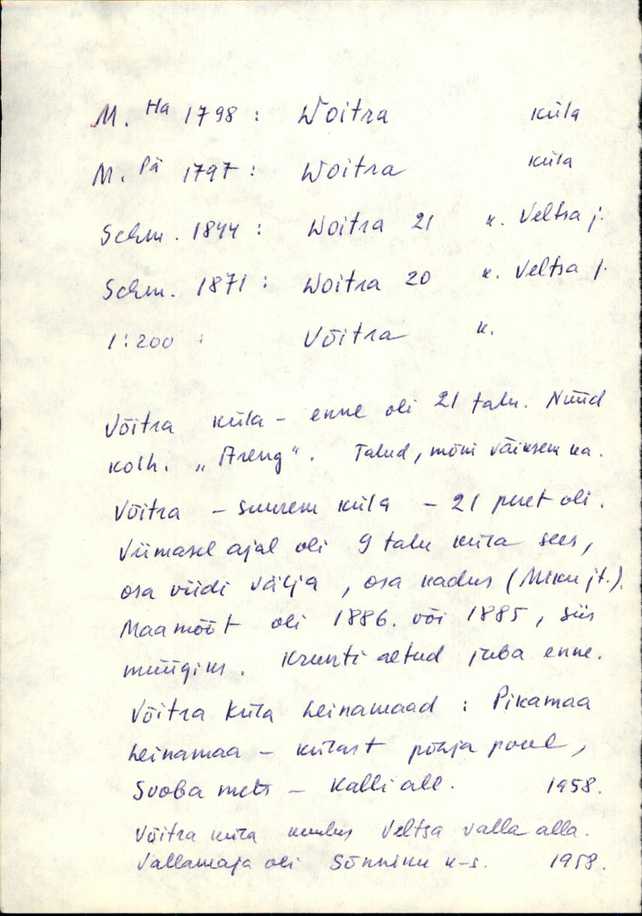 M. Ha 1798 : Woitra küla
M. Pä 1797 : Woitra küla
Schm. 1844 : Woitra 21 k. Veltsa j.
Schm. 1871 : Woitra 20 k. Veltsa j.
1:200 : Võitra k.
Võitra küla – enne oli 21 talu. Nüüd
kolh. „Areng". Talud, mõni väiksem ka.
Võitra – suurem küla – 21 peret oli.
Viimasel ajal oli 9 talu küla sees,
osa viidi välja, osa kadus ( jt.).
Maamõõt oli 1886. või 1885, siis
müügiks. Krunti aetud juba enne.
Võitra küla heinamaad : Pikamaa
heinamaa – külast põhja pool,
Svoba mets – Kalli all. 1958.
Võitra küla kuulus Veltsa valla alla.
Vallamaja oli Sõnniku k-s. 1958.